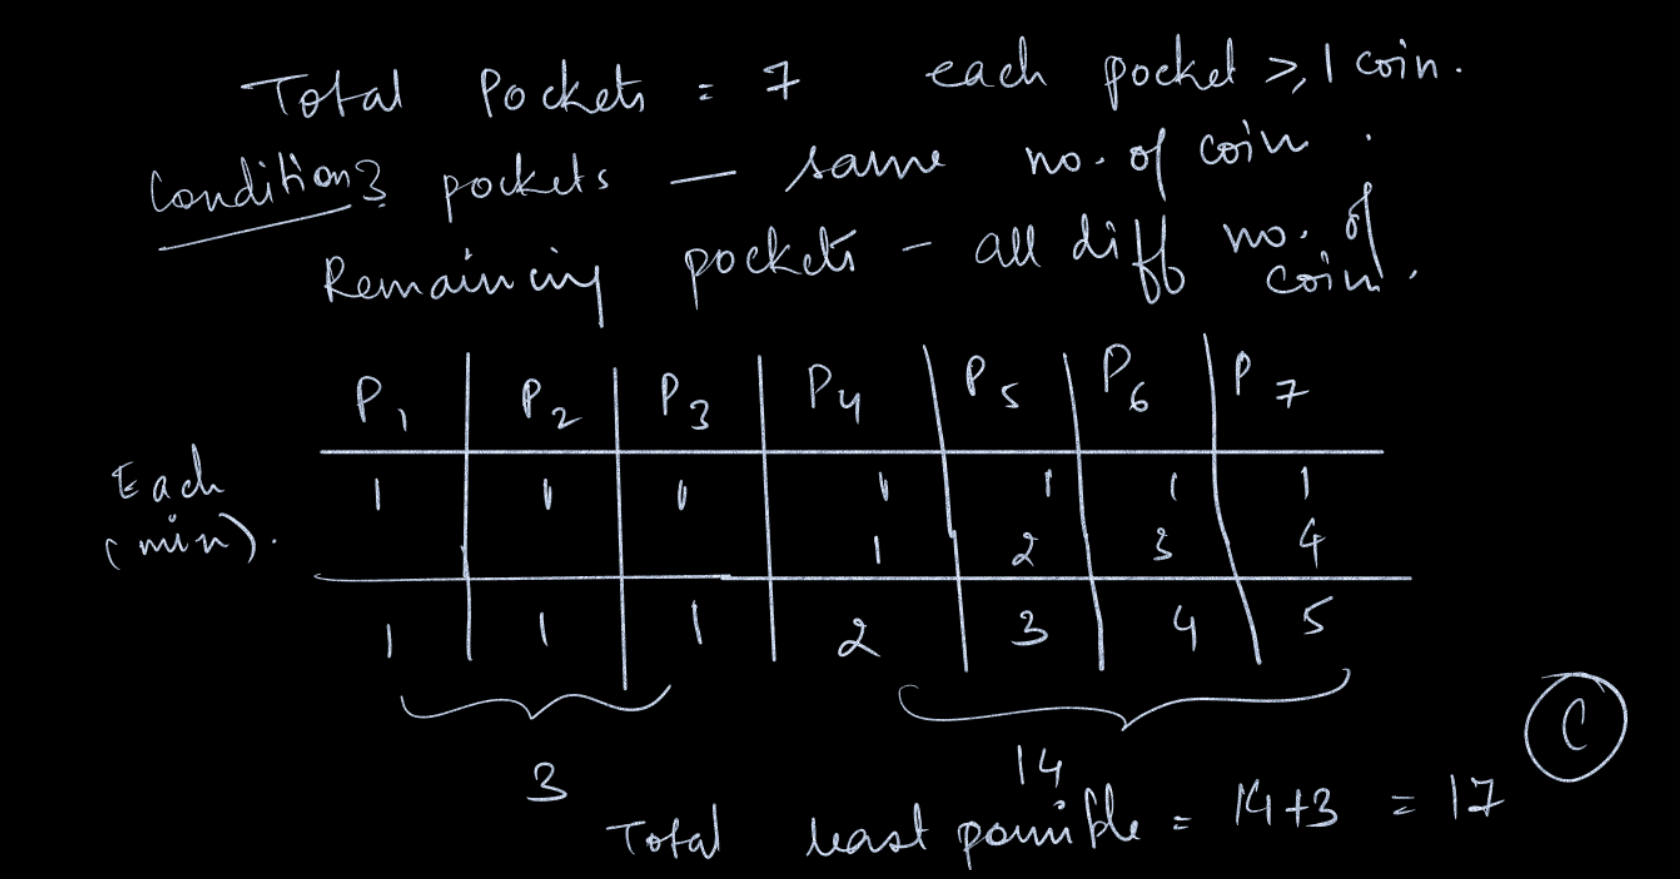 Total Pockets = 7 each pocket ≥ 1 coin.
Condition 3 pockets — same no. of coin.
Remaining pockets - all diff no. of
coin.
P1 P2 P3 P4 P5 P6 P7
Each 1 1 1 1 1 1 1
(min). 1 2 3 4
1 1 1 2 3 4 5
3 14 C
Total least possible = 14+3 = 17